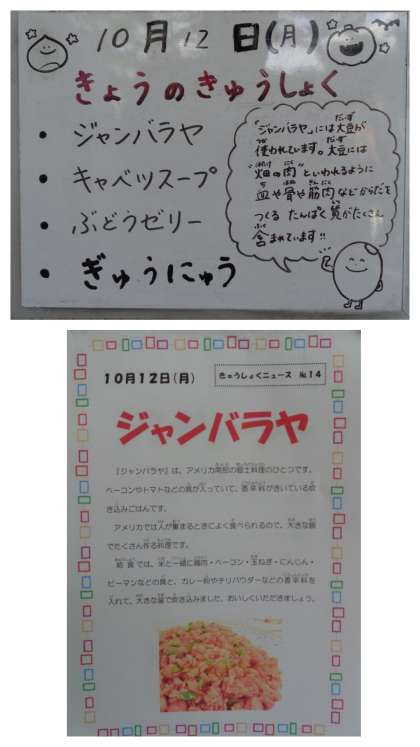 10月12日(月)
きょうのきゅうしょく
• ジャンバラヤ
• キャベツスープ
• ぶどうゼリー
• ぎゅうにゅう
「ジャンバラヤ」には大豆が
使われています。大豆には
"畑の肉"といわれるように
血や骨や筋肉などからだを
つくるたんぱく質がたくさん
含まれています!!
10月12日(月)
きゅうしょくニュース №14
ジャンバラヤ
『ジャンバラヤ』は、アメリカ南部の郷土料理のひとつです。
ベーコンやトマトなどの具が入っていて、香辛料がきいている炊
き込みごはんです。
アメリカでは人が集まるときによく食べられるので、大きな鍋
でたくさん作る料理です。
給食では、米と一緒に鶏肉・ベーコン・玉ねぎ・にんじん・
ピーマンなどの具と、カレー粉やチリパウダーなどの香辛料を
入れて、大きな釜で炊き込みました。おいしくいただきましょう。